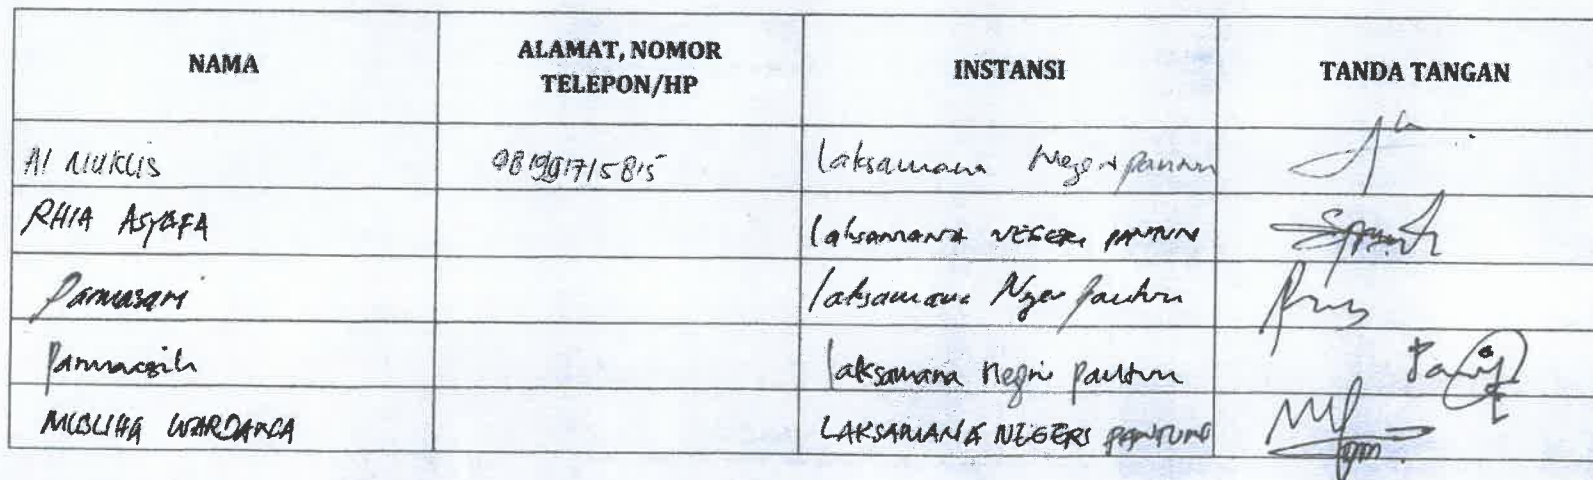 NAMA ALAMAT, NOMOR TELEPON/HP INSTANSI TANDA TANGAN
Al Muklis laksamana Negeri pantun
RHIA ASYAFA laksamana NEGERI PANTUN
Parmasari laksamana Negeri pantun
Parmacsih laksamana Negri pantun
MUSLIHA WARDANA LAKSAMANA NEGERI PANTUN